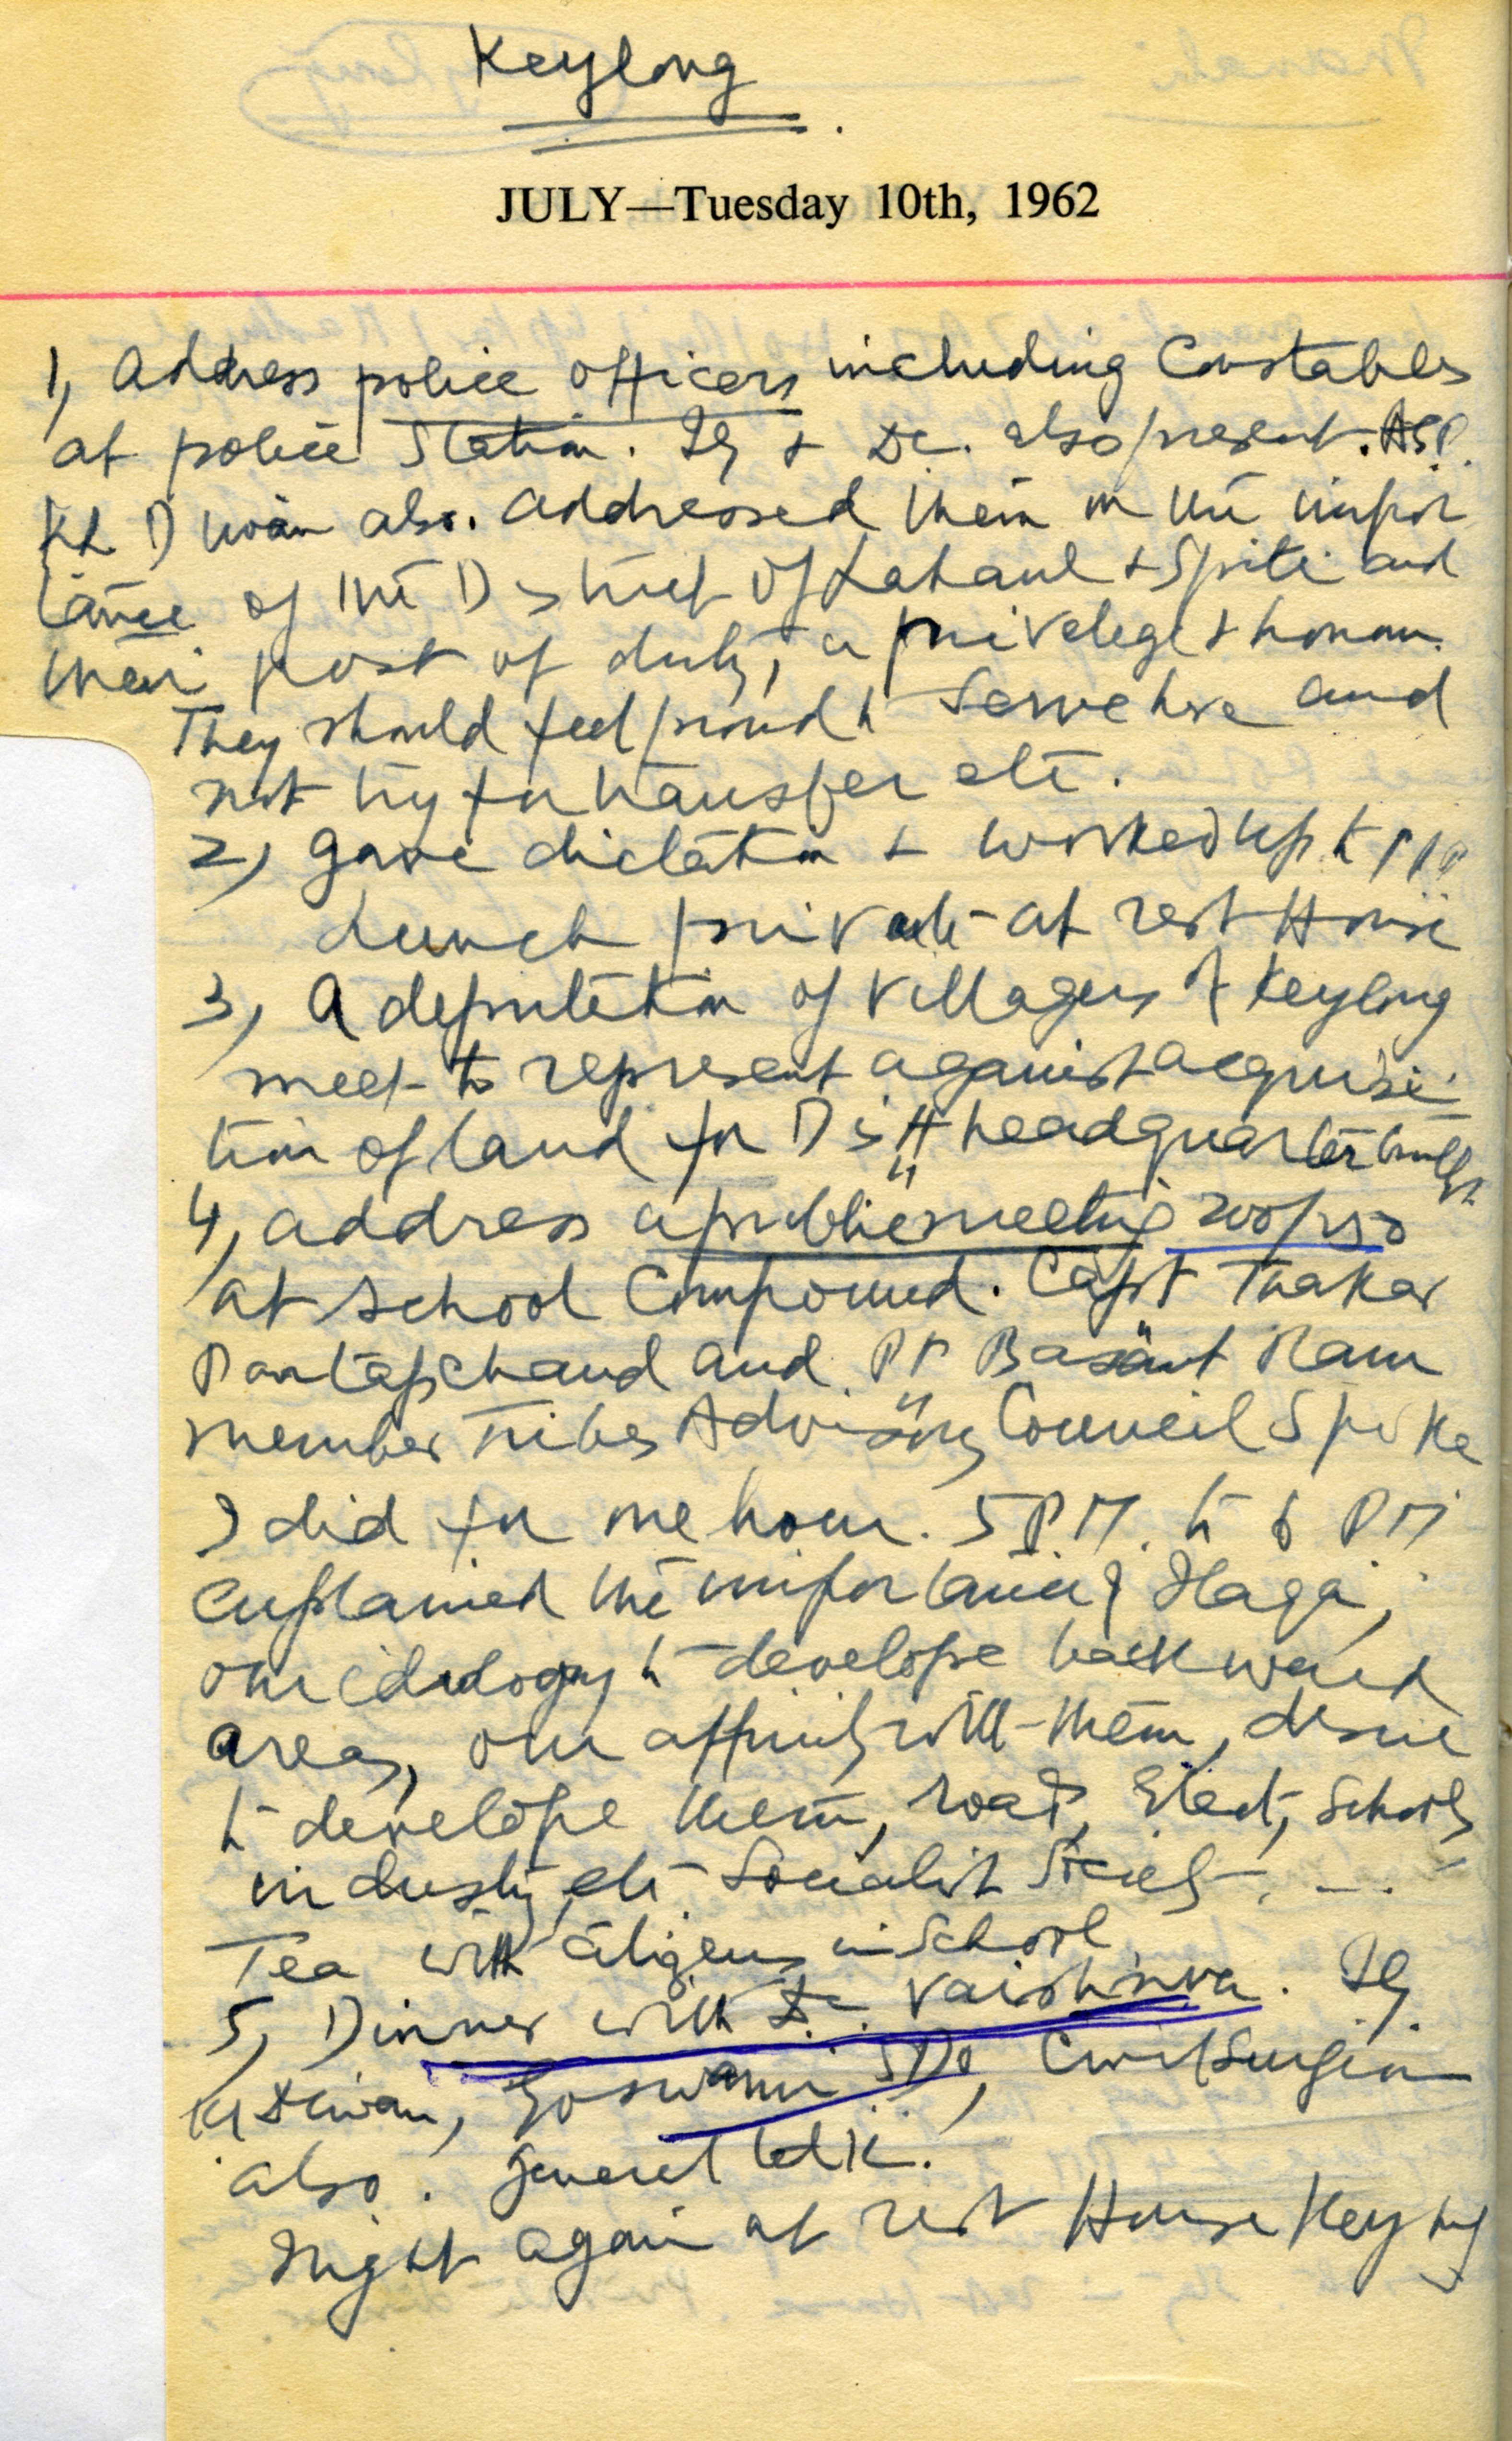 Keylong
JULY—Tuesday 10th, 1962
1, Address police officers including Constables
at police Station. IG & DC. also present. ASP.
KL Diwan also. addressed them on the impor
tance of the District of Lahaul & Spiti and
their post of duty, a privelege & honour.
They should feel proud to serve here and
not try for transfer etc.
2, gave dictation & worked up to 1 PM
Lunch private at rest House
3, A deputation of villagers of Keylong
meet to represent against acquisi
tion of land for Distt headquarter
4, address a public meeting 200 persons
at school Compound. Capt Thakar
Partapchand and Pt Basant Ram
member Tribes Advisory Council Spoke
I did for one hour. 5 PM. to 6 PM
explained the importance of Ilaqa,
our ideology to develope backward
areas, our affinity with them, desire
to develope them, road, Elect, Schools
industry, etc Socialist Society. - .
Tea with citizens in School
5, Dinner with DC Vaishnava. IG.
KL Diwan, Goswami SDO, Civil Surgeon
also. general talk.
Night again at rest House Keylong